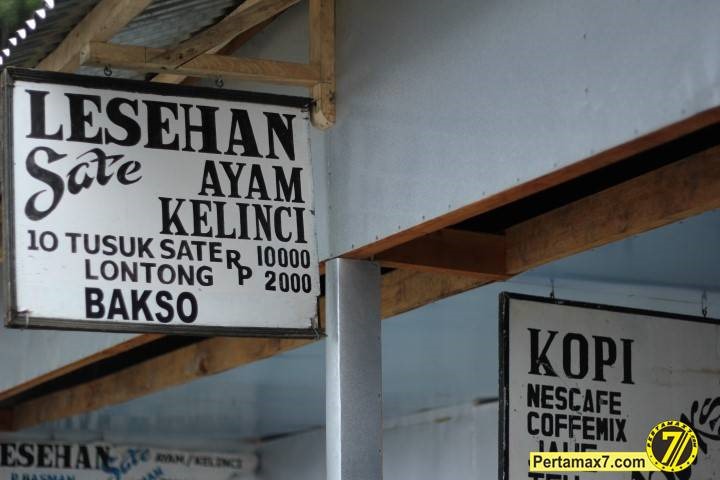 LESEHAN
Sate AYAM
KELINCI
10 TUSUK SATE RP 10000
LONTONG 2000
BAKSO
KOPI
NESCAFE
COFFEMIX
JAHE
TEH
LESEHAN Sate AYAM/KELINCI
Pertamax7.com